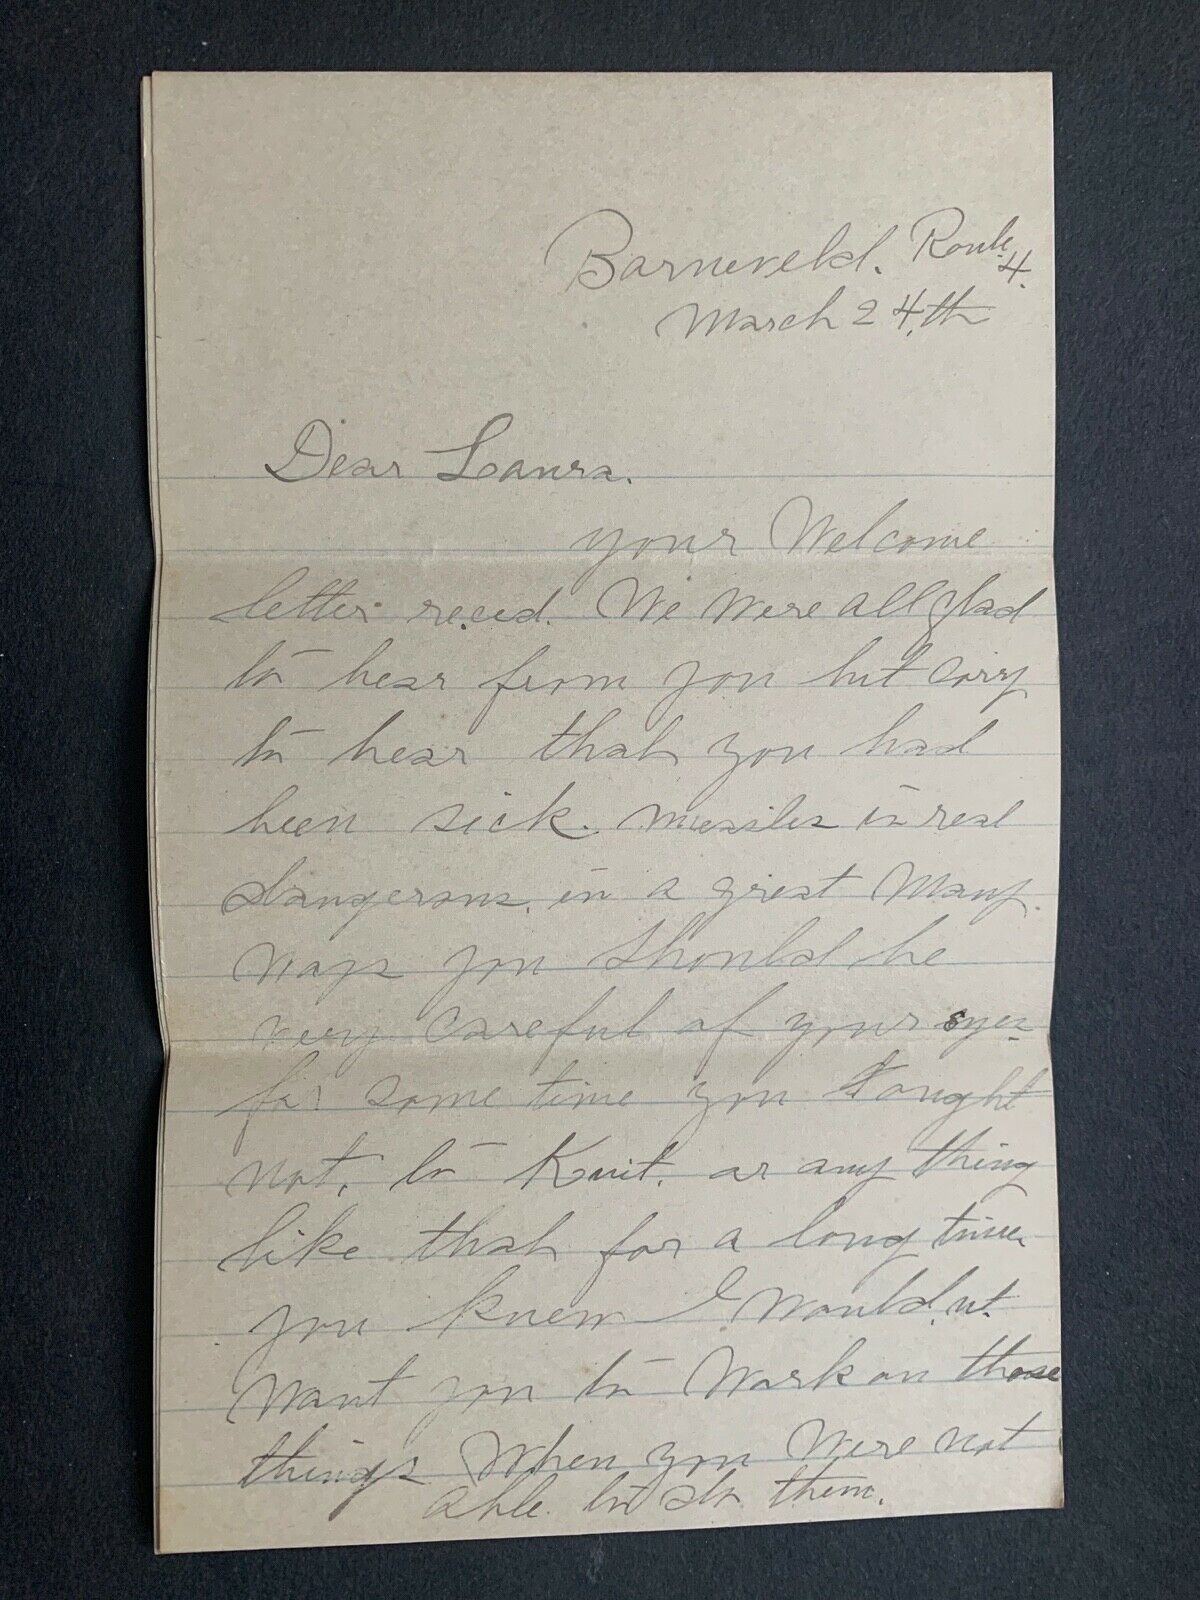 Barneveld. Route 4.
March 24,th
Dear Laura.
your Welcome
letter rec.ed. We Were all glad
to hear from you but sorry
to hear that you had
been sick. measles is real
dangerous. in a great Many.
ways you should be
very careful of your eyes
for some time you ought
not, to Knit. or any thing
like that for a long time.
you knew I would,nt.
want you to Work on those
things When you Were not
able. to do them.